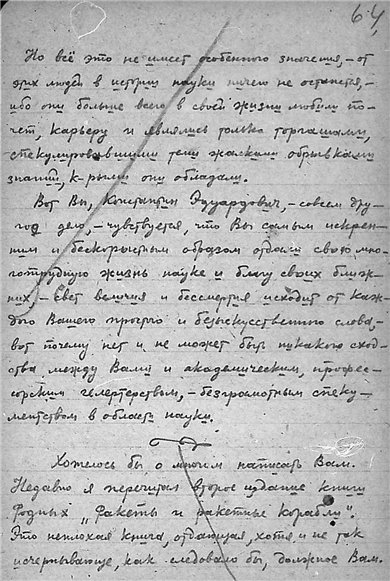 64
Но всё это не имеет особенного значения,—от
этих людей в истории науки ничего не останется,—
ибо они больше всего в своей жизни любили по-
чет, карьеру и являлись только торгашами,
спекулировавшими теми жалкими обрывками
знаний, к-рыми они обладали.
Вот Вы, Константин Эдуардович,—совсем дру-
гое дело,—чувствуется, что Вы самым искрен-
ним и бескорыстным образом отдали свою мно-
готрудную жизнь науке и благу своих ближ-
них,—Свет величия и бессмертия исходит от каж-
дого Вашего простого и безыскусственного слова,—
вот почему нет и не может быть никакого сход-
ства между Вами и академическим, профес-
сорским гелертерством,—безграмотным спеку-
лентством в области науки.
Хотелось бы о многом написать Вам.
Недавно я перечитал второе издание книги
Родных „Ракеты и ракетные корабли".
Это неплохая книга, отдающая, хотя и не так
исчерпывающе, как следовало бы, должное Вам.